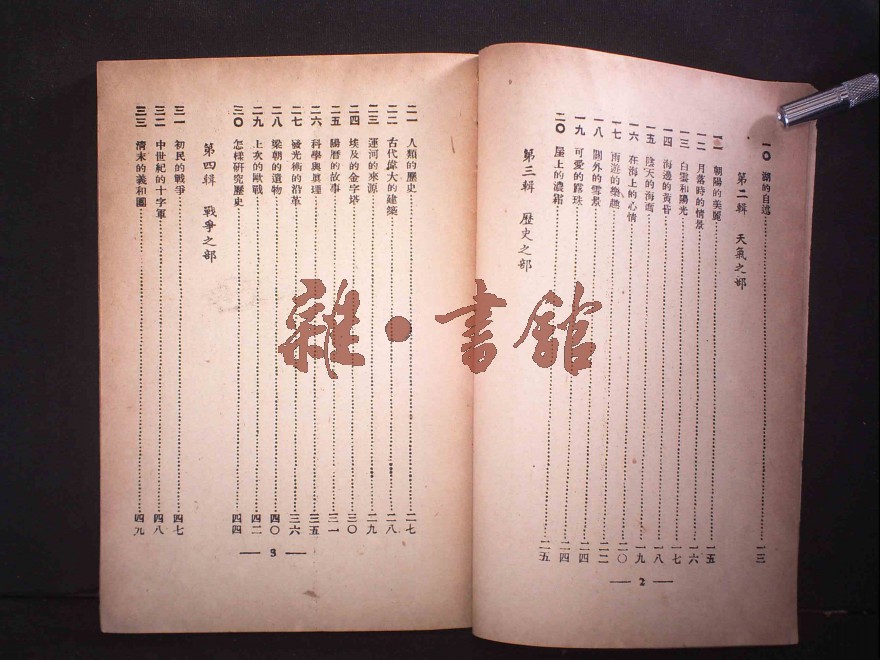 一〇 湖的自述 一三
第二輯 天氣之部
一一 朝陽的美麗 一五
一二 月落時的情景 一六
一三 白雲和陽光 一七
一四 海邊的黃昏 一八
一五 陰天的海面 一九
一六 在海上的心情 一九
一七 雨遊的樂趣 二〇
一八 關外的雪景 二二
一九 可愛的露珠 二四
二〇 屋上的濃霜 二五
第三輯 歷史之部
— 2 —
二一 人類的歷史 二七
二二 古代偉大的建築 二八
二三 運河的來源 二九
二四 埃及的金字塔 三〇
二五 陽曆的故事 三一
二六 科學與真理 三五
二七 發光術的沿革 三六
二八 梁朝的遺物 四〇
二九 上次的歐戰 四二
三〇 怎樣研究歷史 四四
第四輯 戰爭之部
三一 初民的戰爭 四七
三二 中世紀的十字軍 四八
三三 清末的義和團 四九
— 3 —
雜·書館